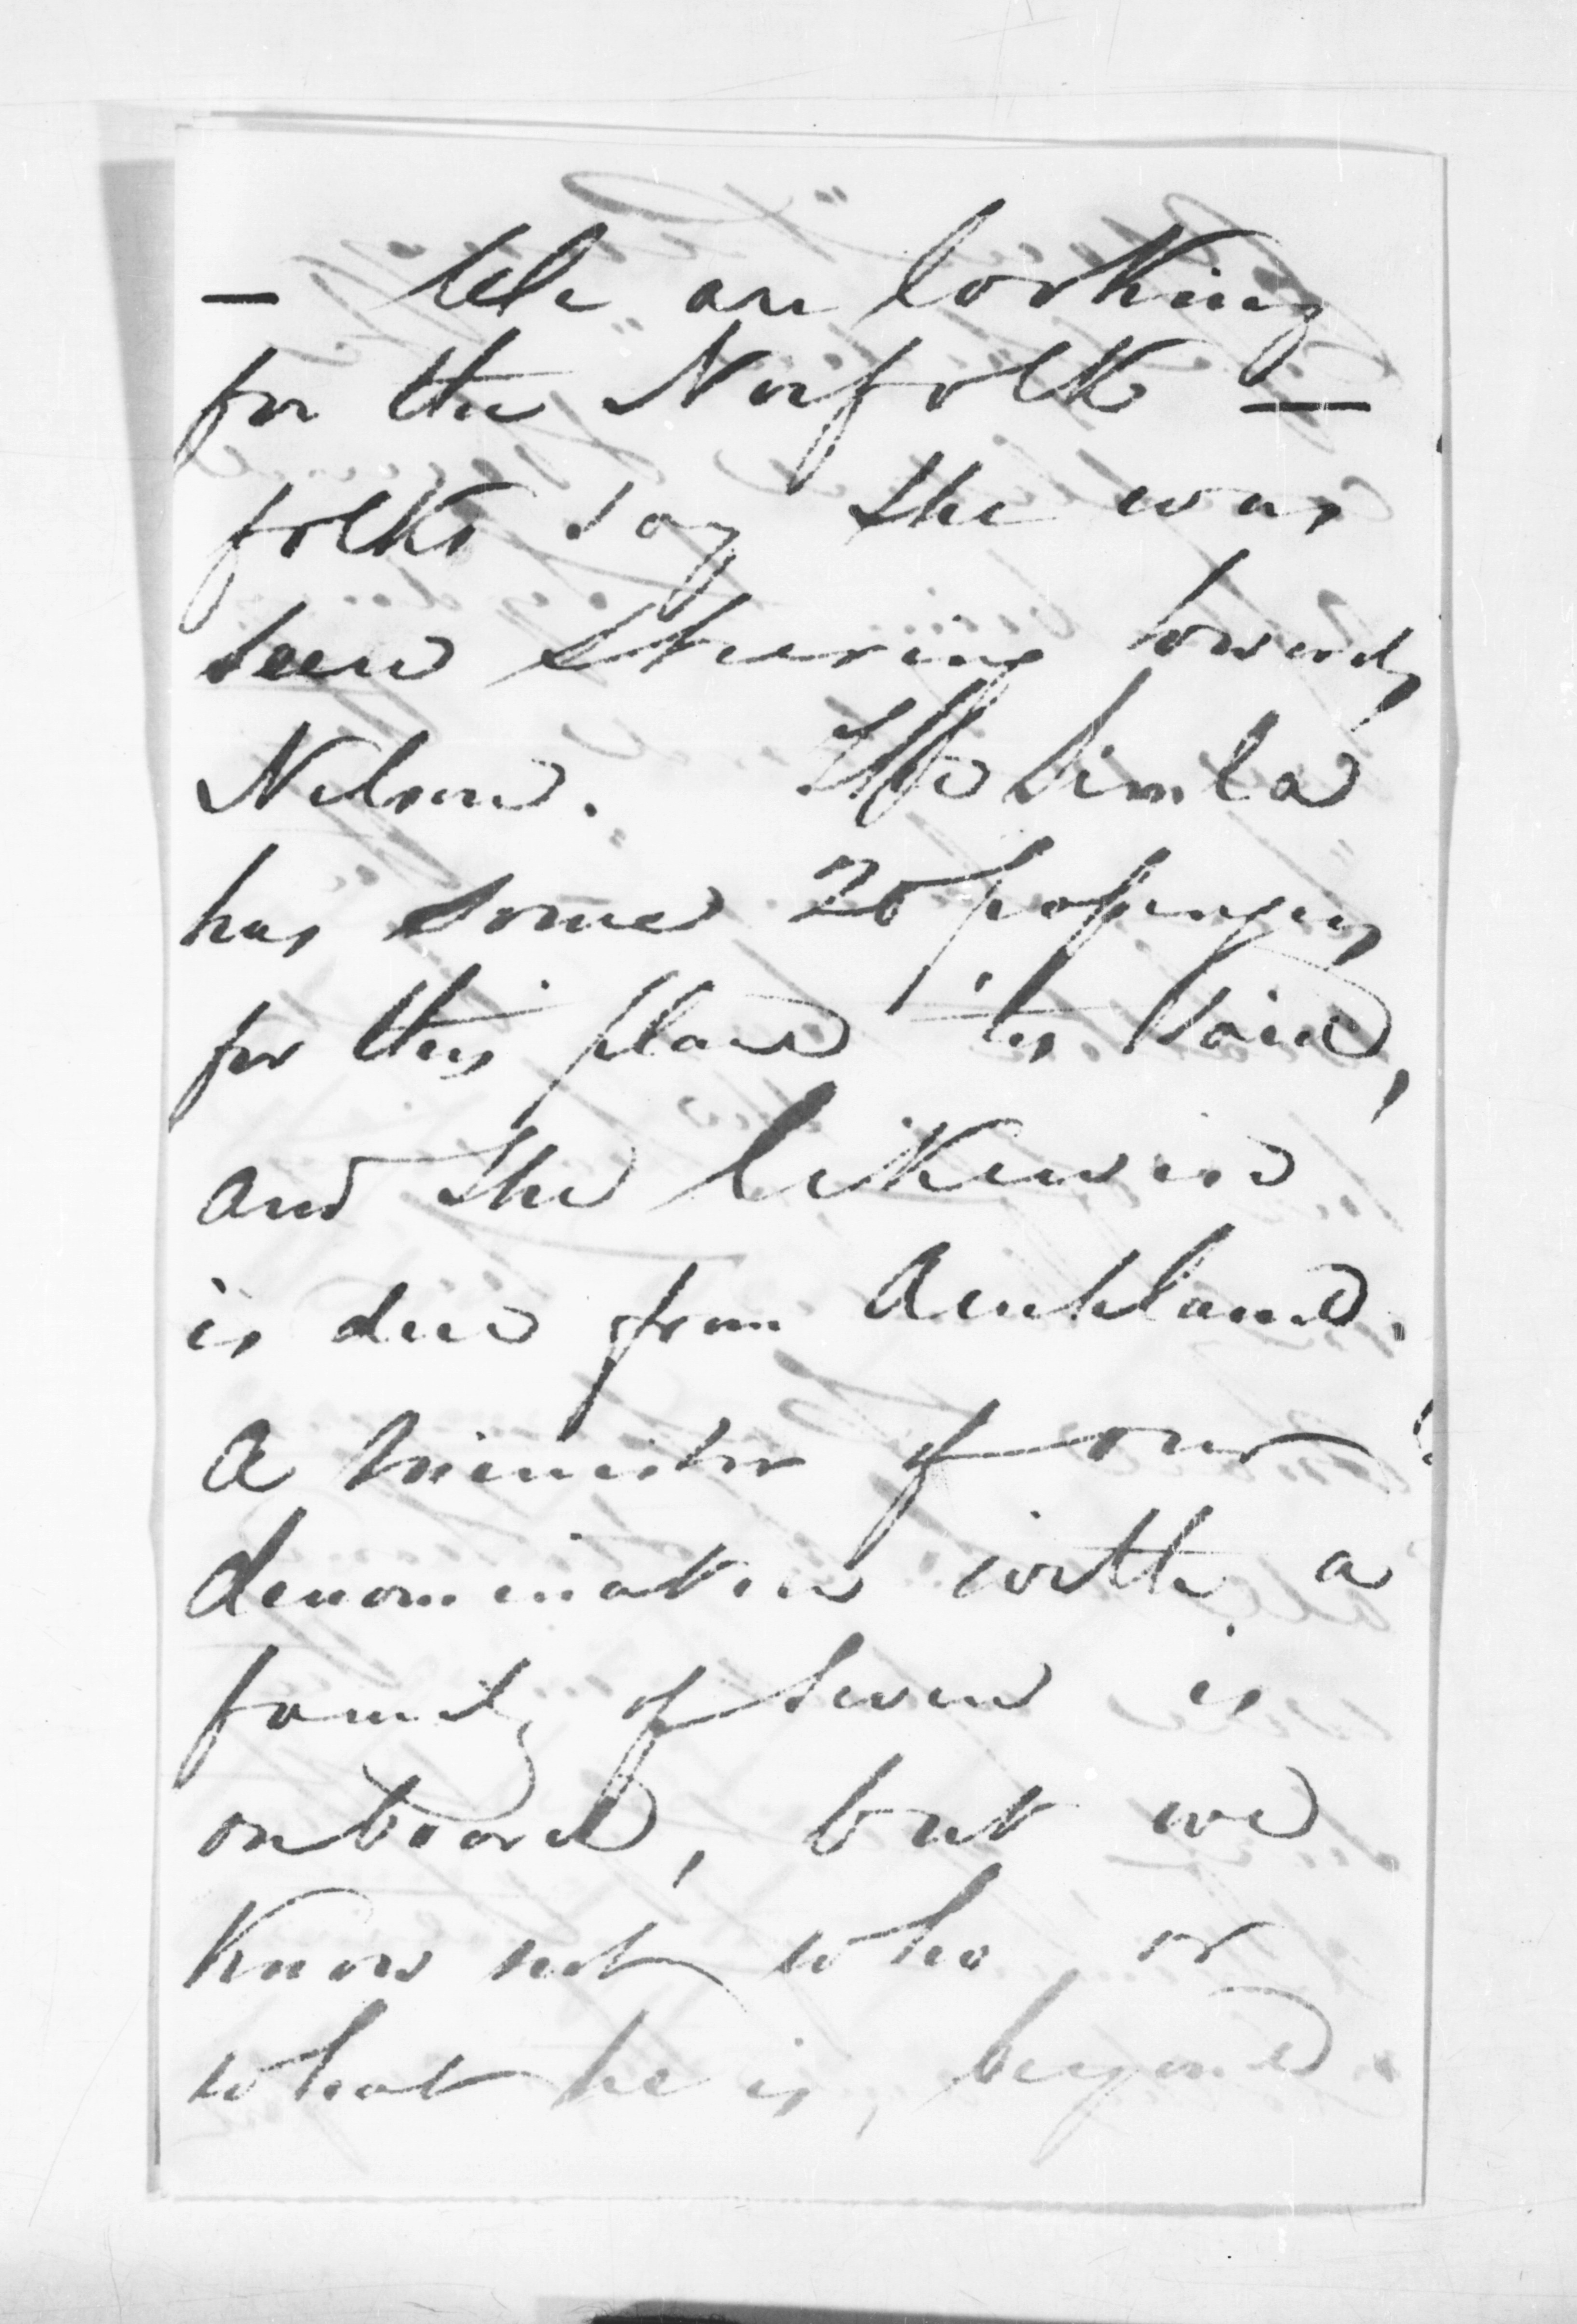 — We are looking
for the Norfolk —
folks say she was
seen steering towards
Nelson. The Simla
has some 20 passengers
for this place 'tis said,
and she likewise
is due from Auckland.
A minister of our
denomination with a
family of seven is
on board, but we
know not who or
what he is, beyond